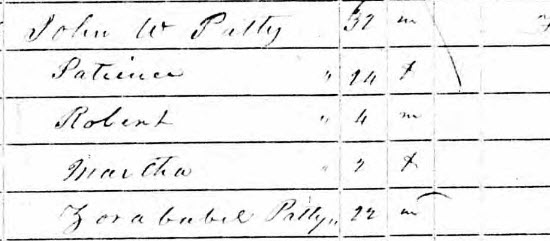 John W Patty 32 m
Patience " 24 f
Robert " 4 m
Martha " 2 f
Zorababel Patty " 22 m